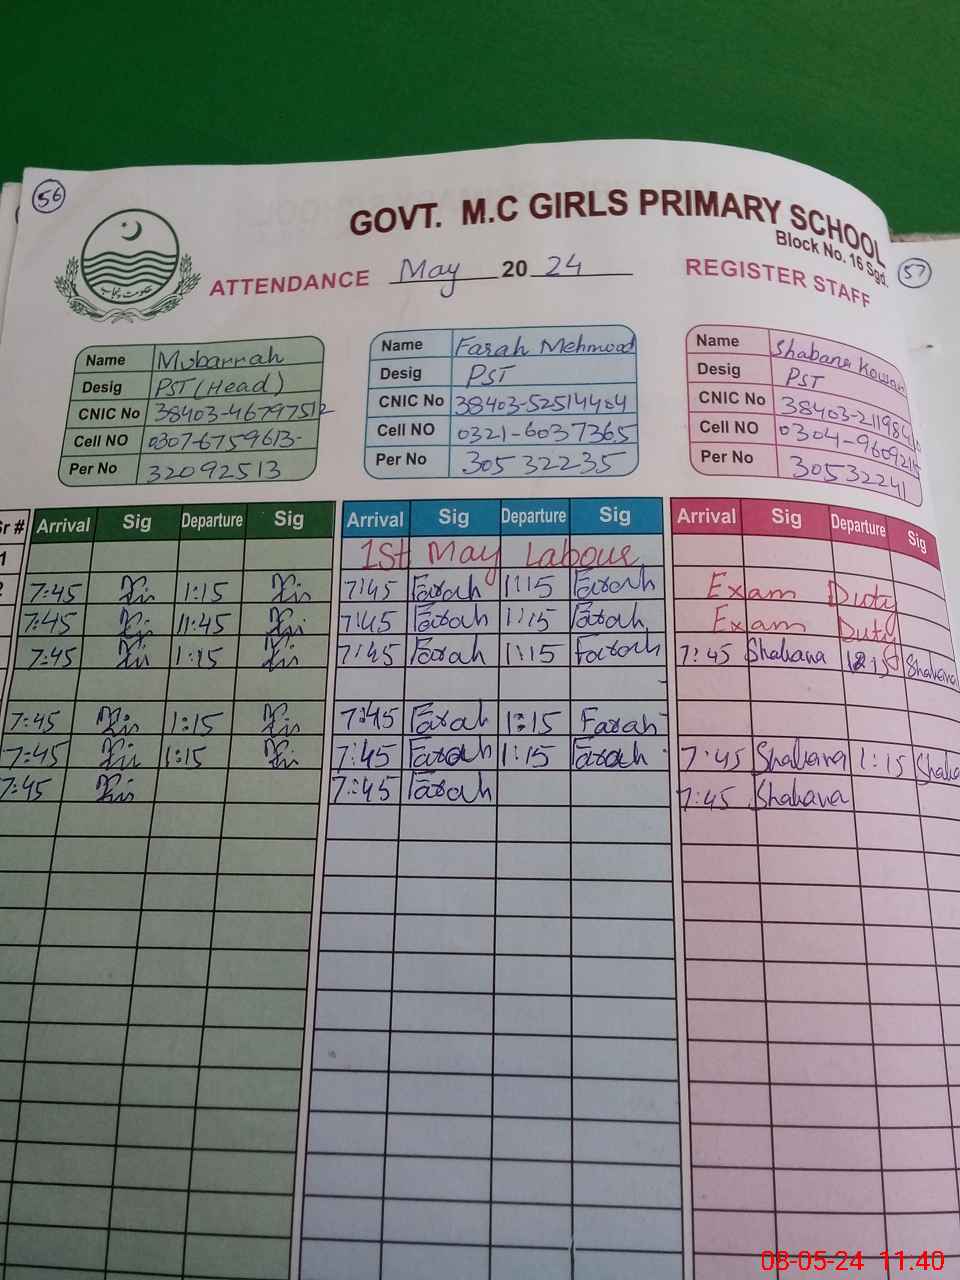 56
GOVT. M.C GIRLS PRIMARY SCHOOL
Block No. 16 Sgd.
57
ATTENDANCE May 2024 REGISTER STAFF
حکومت پنجاب
Name Mubarrah
Desig PST (Head)
CNIC No 38403-4679751
Cell NO 0307-6759613-
Per No 32092513
Name Farah Mehmood
Desig PST
CNIC No 38403-52514484
Cell NO 0321-6037365
Per No 30532235
Name Shabana Kousar
Desig PST
CNIC No 38403-21198
Cell NO 0304-9609215
Per No 30532241
Sr # Arrival Sig Departure Sig Arrival Sig Departure Sig Arrival Sig Departure Sig
1 1st May Labour
2 7:45 1:15 7:45 Farah 1:15 Farah Exam Duty
7:45 11:45 7:45 Farah 1:15 Farah Exam Duty
7:45 1:15 7:45 Farah 1:15 Farah 7:45 Shabana 12:15 Shabana
7:45 1:15 7:45 Farah 1:15 Farah
7:45 1:15 7:45 Farah 1:15 Farah 7:45 Shabana 1:15 Shaba
7:45 7:45 Farah 7:45 Shabana
08-05-24 11.40